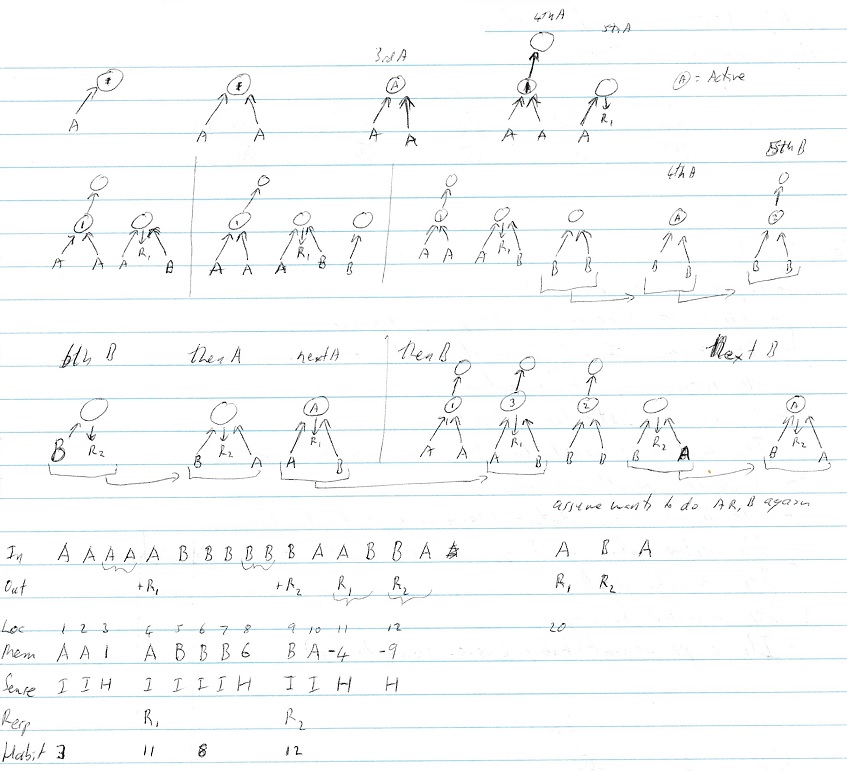 4th A
3rd A 5th A
A = Active
A A A A A A A A R1
4th A 5th B
1 1 1 A 2
A A A R1 B A A A R1 B B A A A R1 B B B B B B B
6th B then A next A then B Next B
A 1 3 2 A
B R2 B R2 A A R1 B A A A R1 B B B B R2 A B R2 A
assume wants to do A R1 B again
In A A A A A B B B B B B A A B B A A B A
Out +R1 +R2 R1 R2 R1 R2
Loc 1 2 3 4 5 6 7 8 9 10 11 12 20
Mem A A 1 A B B B 6 B A -4 -9
Sense I I H I I I I H I I H H
Resp R1 R2
Habit 3 11 8 12